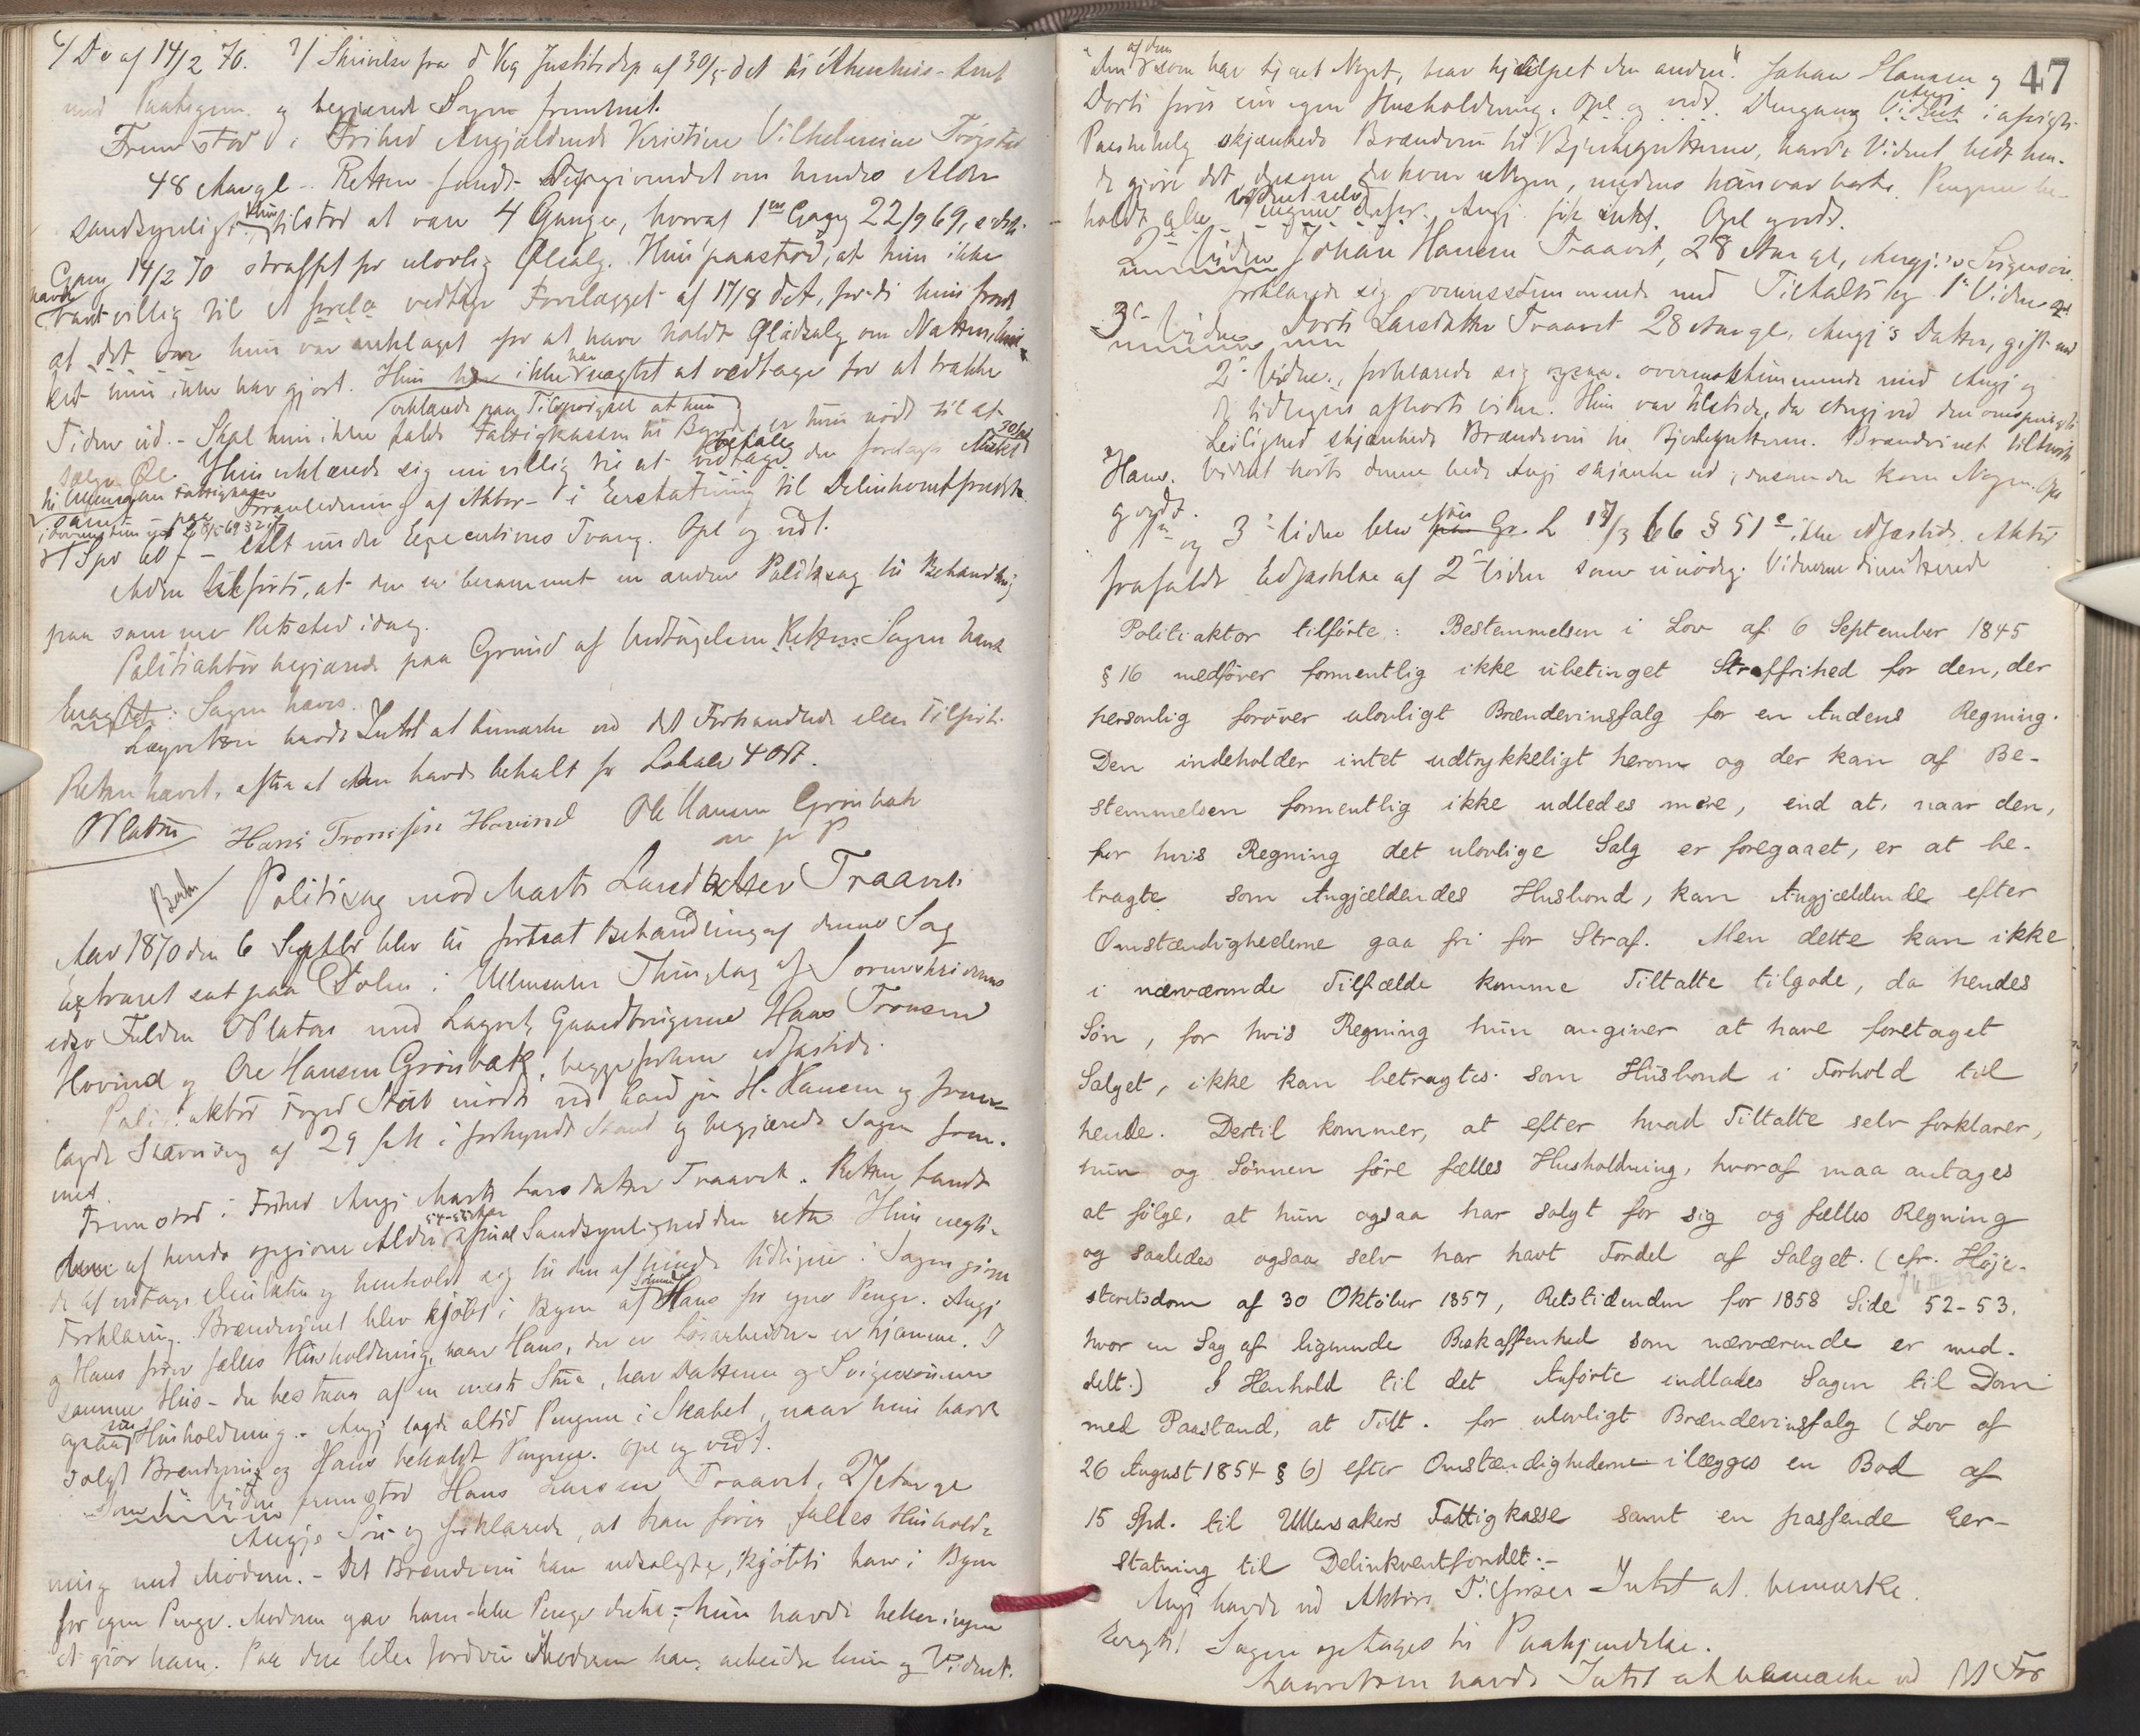 6/ Do af 14/2 70. 7/ Skrivelse fra d Kg Justitsdep af 30/5 det til Akershus Amt
med Paategn. og begjærede Sagen fremmet.
Fremstod i Frihed Angjældende Kristine Vilhelmine Trøgstad
48 Aar gl. Retten fandt Opgivendet om hendes Alder
sandsynligt. Hun tilstod at være 4 Gange, hvoraf 1ste Gang 22/9 69, sidste
Gang 14/2 70 straffet for ulovlig Ølsalg. Hun paastod, at hun ikke
havde vært villig til at vedtage Forelægget af 17/8 det, fordi hun troede
at det var hun var anklaget for at have holdt Øludsalg om Natten, hvil-
ket hun ikke har gjort. Hun har ikke nægtet at vedtage for at trække
Tiden ud. - erklærede paa Tilspørgsel at hun
Skal hun ikke falde Fattigkassen til Byrde, er hun nødt til at
sælge Øl. Hun erklærede sig nu villig til at betale den forelagte Mulkt 30 Spd
til Ullensakers Fattigkasse
samt paa Foranledning af Aktor i Erstatning til Delinkventfondet
1 Spd alt under Executions Tvang. Opl og vedt.
Adm tilførte, at der er berammet en anden Politisag til Behandling
paa samme Retssted idag.
Politiaktor begjærede paa Grund af Vedtagelsen Sagen hævet
Eragtet: Sagen hæves.
Lagretten havde Intet at bemærke ved det Forhandlede eller Tilførte.
Retten hævet, efterat Adm havde betalt for Lokale 4 Ort.
O Platou Hans Tronsen Hovind Ole Hansen Grønbak
m p P
Politisag mod Marte Larsdatter Traavet
Aar 1870 den 6 Septbr blev til fortsat Behandling af denne Sag
Extraret sat paa Dolin i Ullensaker Thinglag af Sorenskriverens
edsv Fuldm O Platou med Lagret, Gaardbrugerne Hans Tronsen
Hovind og Ole Hansen Grønbak, begge forhen edfæstede.
Politiaktor Foged mødte ved H. Hansen og frem-
lagde Stævning af 29 f M i forkyndt Stand og begjærede Sagen frem-
met.
Fremstod i Frihed Angj Marte Larsdatter Traavet. Retten fandt
den af hende opgivne Alder 54-55 Aar af Sandsynlighed den rette. Hun negte-
de at vedtage Mulkten og henholdt sig til den af hende tidligere i Sagen givne
Forklaring. Brændevinet blev kjøbt i Byen af Sønnen Hans for egne Penge. Angj
og Hans fører fælles Husholdning, naar Hans, der er Løsarbeider er hjemme. I
samme Hus - der bestaar af en eneste Stue, har Datteren og Svigersønnen
ogsaa sin Husholdning. - Angj lagde altid Pengene i Skabet, naar hun havde
solgt Brændevin og Hans beholdt Pengene. Opl og vedt.
Som 1ste Vidne fremstod Hans Larsen Traavet, 27 Aar gl
Angjs Søn og forklarede, at han fører fælles Hushold-
ning med Moderen. - Det Brændevin han udsolgte, kjøbte han i Byen
for egne Penge. Moderen gav ham ikke Penge dertil; hun havde heller ingen
at give ham. Paa den liden Jordvei Moderen har, arbeider hun og Vidnet.
47
"den af dem som har tjent Noget, har hjulpet den anden". Johan Hansen og
Dorte føre sin egen Husholdning. Opl og vedt. Dengang Angj i afvigte
Paaskehelg skjænkede Brændevin til Bjerkegutterne, havde Vidnet bedt hen-
de gjøre det, dersom der kom Nogen, medens han var borte. Pengene be-
holdt Vidnet selv. Angj. fik intet. Opl og vedt.
2det Vidne Johan Hansen Traavet, 28 Aar gl, Angj.s Svigersøn
forklarede sig overensstemmende med Tiltalte og 1ste Vidne
3die Vidne Dorte Larsdatter Traavet 28 Aar gl, Angj's Datter, gift med
2det Vidne, forklarede sig ogsaa overensstemmende med Angj og
de tidligere afhørte Vidner. Hun var tilstede, da Angj ved den omspurgte
Leilighed skjænkede Brændevin til Bjerkegutterne. Brændevinet tilhørte
Hans. Vidnet hørte denne bede Angj skjænke ud, dersom der kom Nogen. Opl
og vedt.
1ste og 3die Vidne blev efter Gr. L 17/3 66 § 51 ikke edfæstede. Aktor
frafaldt Edfæstelse af 2det Vidne som unødig. Vidnerne dimitterede
Politiaktor tilførte: Bestemmelsen i Lov af 6 September 1845
§ 16 medfører formentlig ikke ubetinget Straffrihed for den, der
personlig forøver ulovligt Brændevinssalg for en Andens Regning.
Den indeholder intet udtrykkeligt herom og der kan af Be-
stemmelsen formentlig ikke udledes mere, end at, naar den,
for hvis Regning det ulovlige Salg er foregaaet, er at be-
tragte som Angjældendes Husbond, kan Angjældende efter
Omstændighederne gaa fri for Straf. Men dette kan ikke
i nærværende Tilfælde komme Tiltalte tilgode, da hendes
Søn, for hvis Regning hun angiver at have foretaget
Salget, ikke kan betragtes som Husbond i Forhold til
hende. Dertil kommer, at efter hvad Tiltalte selv forklarer,
hun og Sønnen føre fælles Husholdning, hvoraf maa antages
at følge, at hun ogsaa har solgt for sig og fælles Regning
og saaledes ogsaa selv har havt Fordel af Salget. (cfr. Høje-
steretsdom af 30 Oktober 1857, Retstidenden for 1858 Side 52-53,
hvor en Sag af lignende Beskaffenhed som nærværende er med-
delt.) I Henhold til det Anførte indlades Sagen til Dom
med Paastand, at Tilt. for ulovligt Brændevinssalg (Lov af
26 August 1854 § 6) efter Omstændighederne ilægges en Bod af
15 Spd. til Ullensakers Fattigkasse samt en passende Er-
statning til Delinkventfondet. -
Angj havde ved Aktors Tilførsel Intet at bemærke.
Eragtet Sagen optages til Paakjendelse.
Lagretten havde Intet at bemærke ved det For